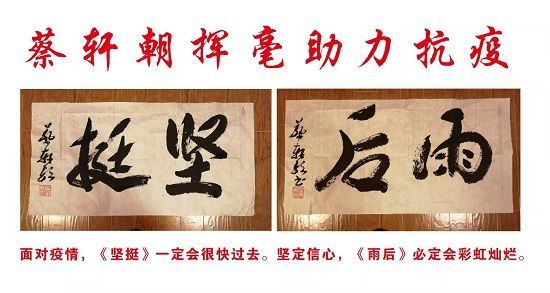 蔡轩朝挥毫助力抗疫
坚挺
蔡轩朝
雨后
蔡轩朝书
面对疫情，《坚挺》一定会很快过去。坚定信心，《雨后》必定会彩虹灿烂。